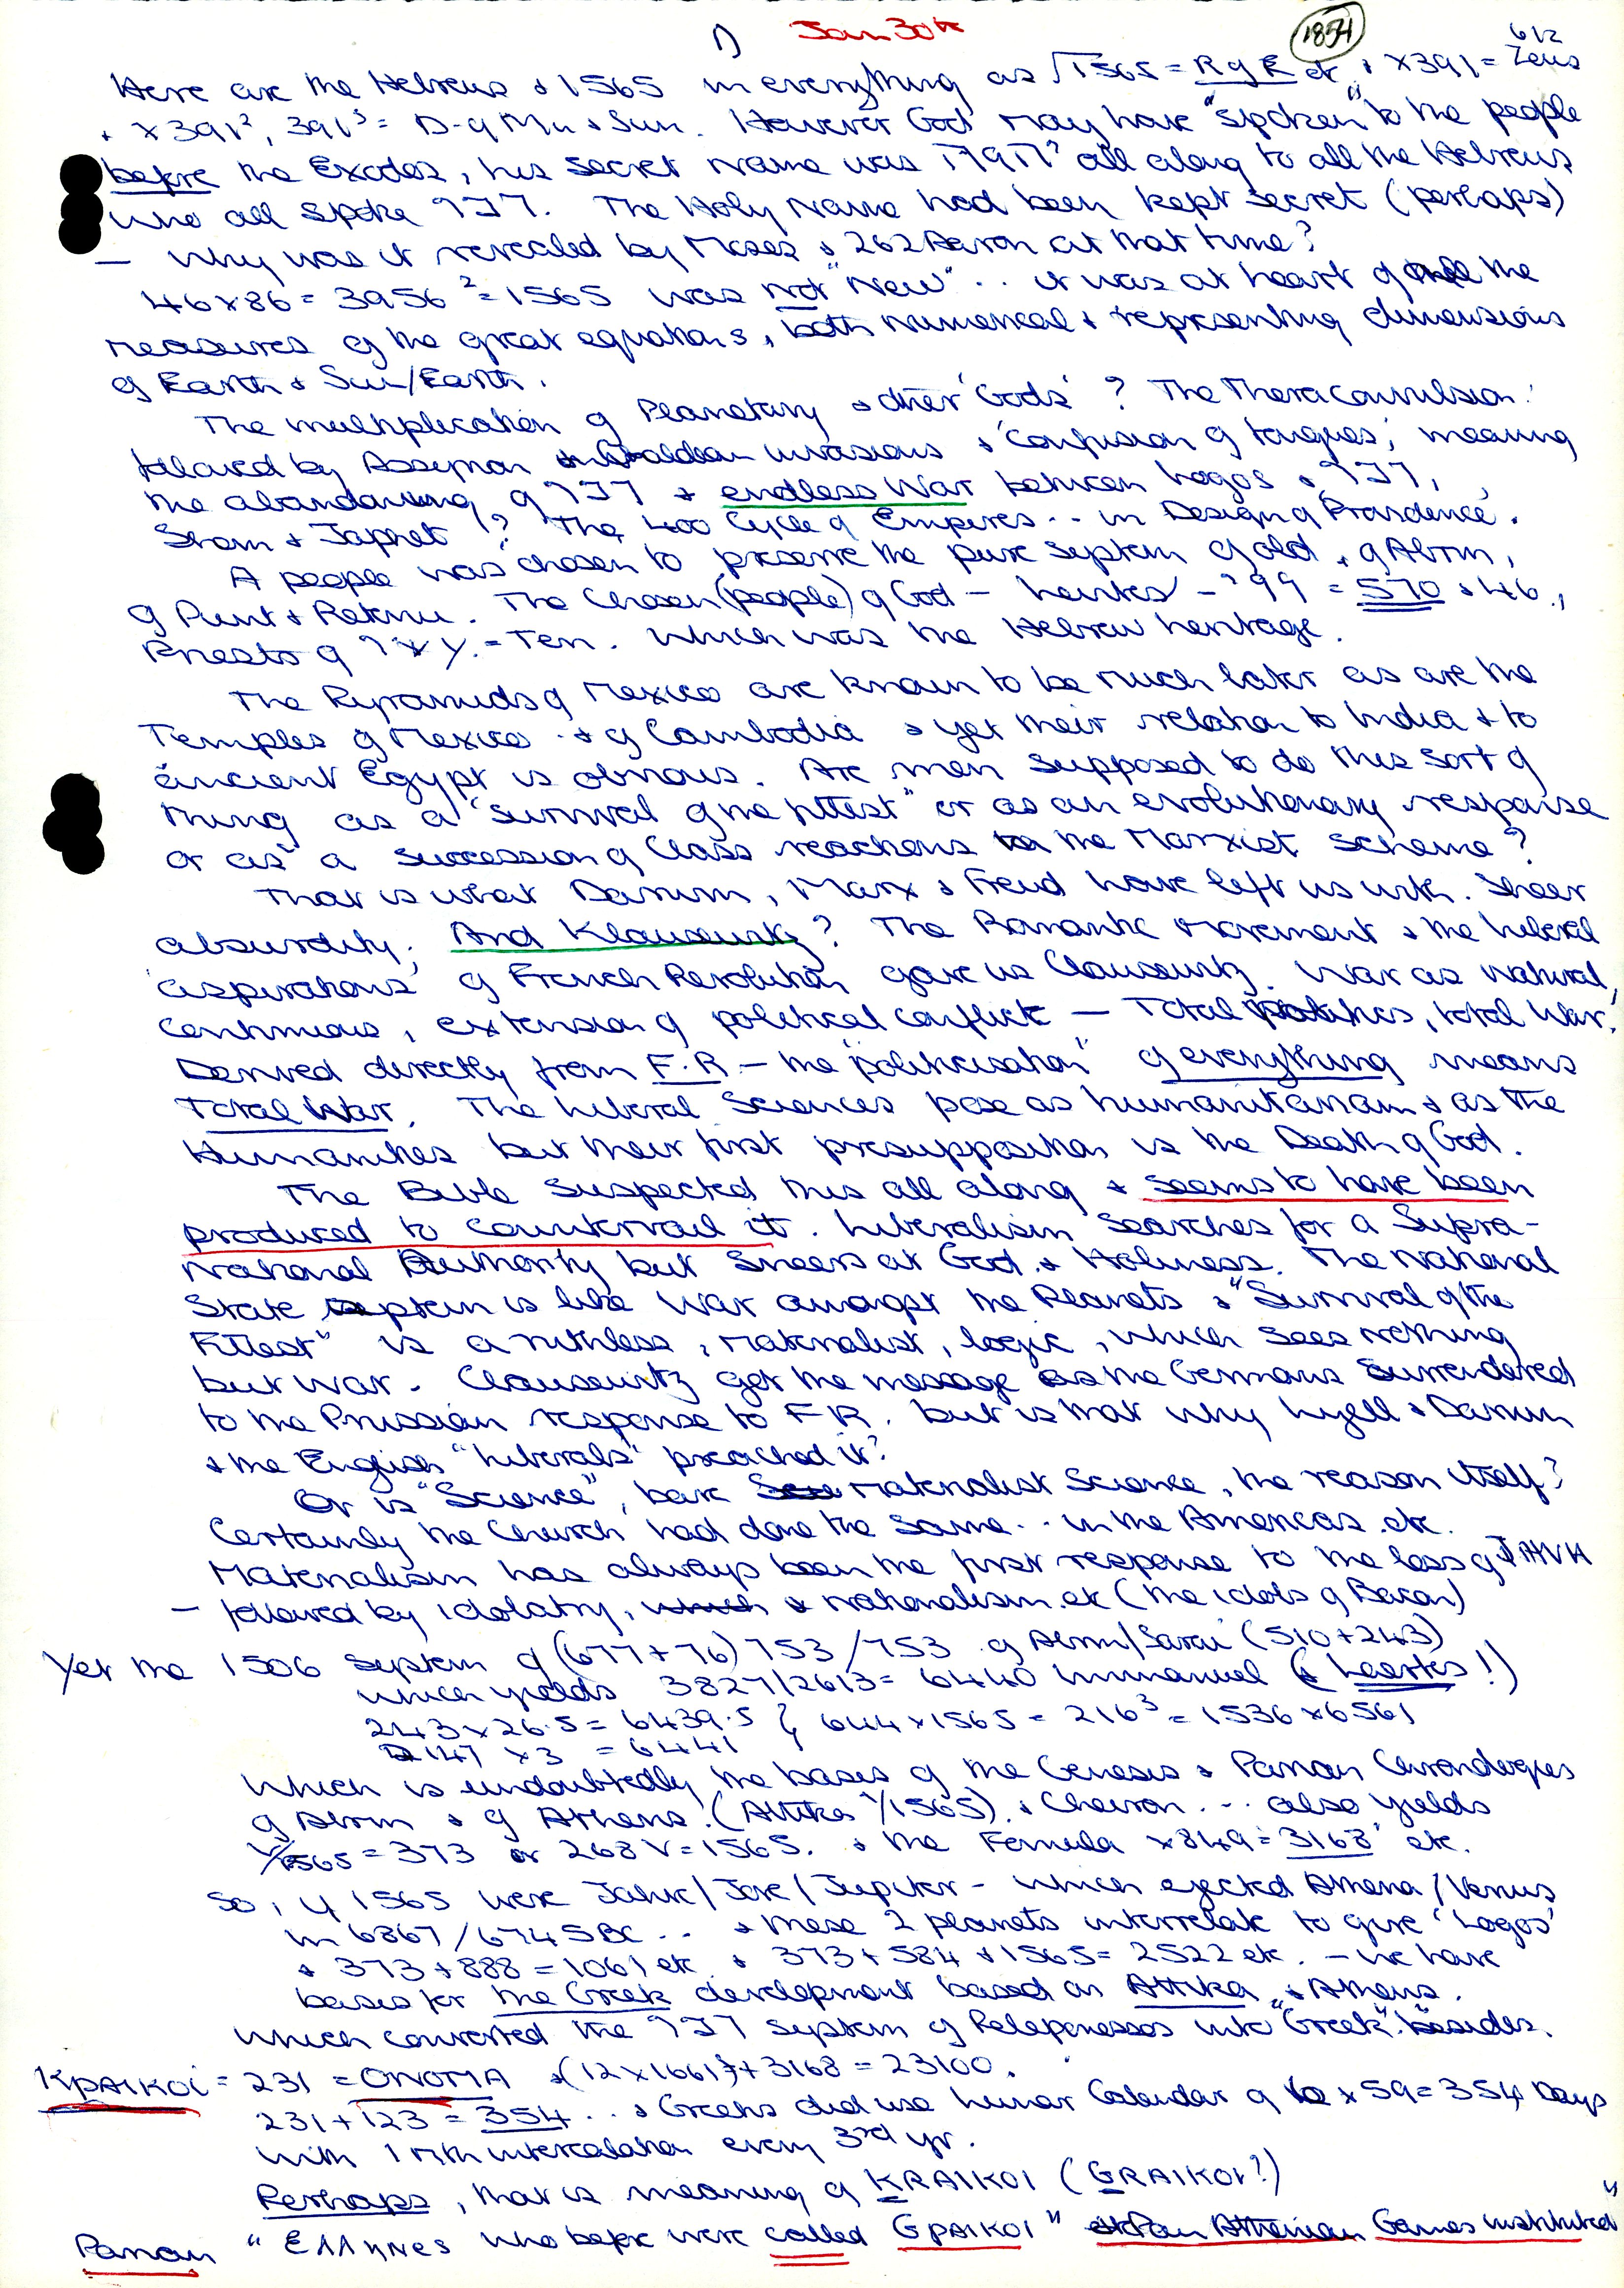 1) Jan 30th 1854
Here are the Hebrews & 1565 in everything as √1565 = R of E etc, & ×391 = 612 Zeus
& ×391², 391³ = D of Mn & Sun. However God may have "spoken" to the people
before the Exodos, his secret Name was all along to all the Hebrews,
who all spoke. The Holy Name had been kept secret (perhaps)
— Why was it revealed by Moses & 262 Aaron at that time?
46×86 = 3956 ² = 1565 was not "New".. it was at heart of the
measures of the great equations, both numerical & representing dimensions
of Earth & Sun/Earth.
The multiplication of Planetary & other 'Gods'? The Thera Convulsion
followed by Assyrian invasions & 'Confusion of tongues', meaning
the abandoning of & endless War between Logos &
Shem & Japhet!? The 400 Cycle of Empires.. in Design of Providence.
A people was chosen to preserve the pure system of old, of Abrm,
of Punt & Retenu. The Chosen (people) of God - = 570 & 46,
Priests of = Ten. Which was the Hebrew heritage.
The Pyramids of Mexico are known to be much later as are the
Temples of Mexico & of Cambodia & yet their relation to India & to
ancient Egypt is obvious. Are men supposed to do this sort of
thing as a "survival of the fittest" or as an evolutionary response
or as a succession of Class reactions to the Marxist scheme?
That is what Darwin, Marx & Freud have left us with. Sheer
absurdity. And Klausewitz? The Romantic Movement & the liberal
'aspirations' of French Revolution gave us Clausewitz. War as natural,
continuous, extension of political conflict — Total politics, total War.
Derived directly from F.R. — the "politicisation" of everything means
Total War. The Liberal Sciences pose as humanitarian & as the
Humanities but their first presupposition is the Death of God.
The Bible suspected this all along & seems to have been
produced to countervail it. Liberalism searches for a Supra-
National Authority but sneers at God & Holiness. The National
State system is like War amongst the Planets & "Survival of the
Fittest" is a ruthless, materialist, logic, which sees nothing
but war. Clausewitz got the message as the Germans surrendered
to the Prussian response to F.R. but is that why Lyell & Darwin
& the English "Liberals" preached it?
Or is "Science", bare Materialist Science, the reason itself?
Certainly the Church had done the same.. in the Americas etc.
Materialism has always been the first response to the loss of JAHVH
— followed by idolatry, & nationalism etc (the idols of Bacon)
Yet the 1506 system of (677+76) 753/753 of Abrm/Sarai (510+243)
which yields 3827/2613 = 6440 Immanuel (& Laertes!)
243×26.5 = 6439.5 } 644×1565 = 216³ = 1536×6561
2147 ×3 = 6441
Which is undoubtedly the bases of the Genesis & Parian Chronologies
of Abrm & of Athens. (Attika √/1565). & Cheiron... also yields
√/1565 = 373 or 268 V = 1565. & the Formula ×849 = 3168 etc.
So, if 1565 were Jahve/Jove/Jupiter - which ejected Athena/Venus
in 6867/6745 BC.. & these 2 planets interrelate to give 'Logos'
& 373+888 = 1061 etc. & 373+584+1565 = 2522 etc. — we have
bases for the Greek development based on Attika & Athens.
Which converted the system of Peleponessos into "Greek". besides.
KρAIKOI = 231 = ONOMA & (12×1661)+3168 = 23100.
231+123 = 354.. & Greeks did use lunar Calendar of 6×59 = 354 Days
with 1 mth intercalation every 3rd yr.
Perhaps, that is meaning of KRAIKOI (GRAIKOI?)
Parian "Ελληνες who before were called GρAIKOI" Pan Athenian Games instituted"